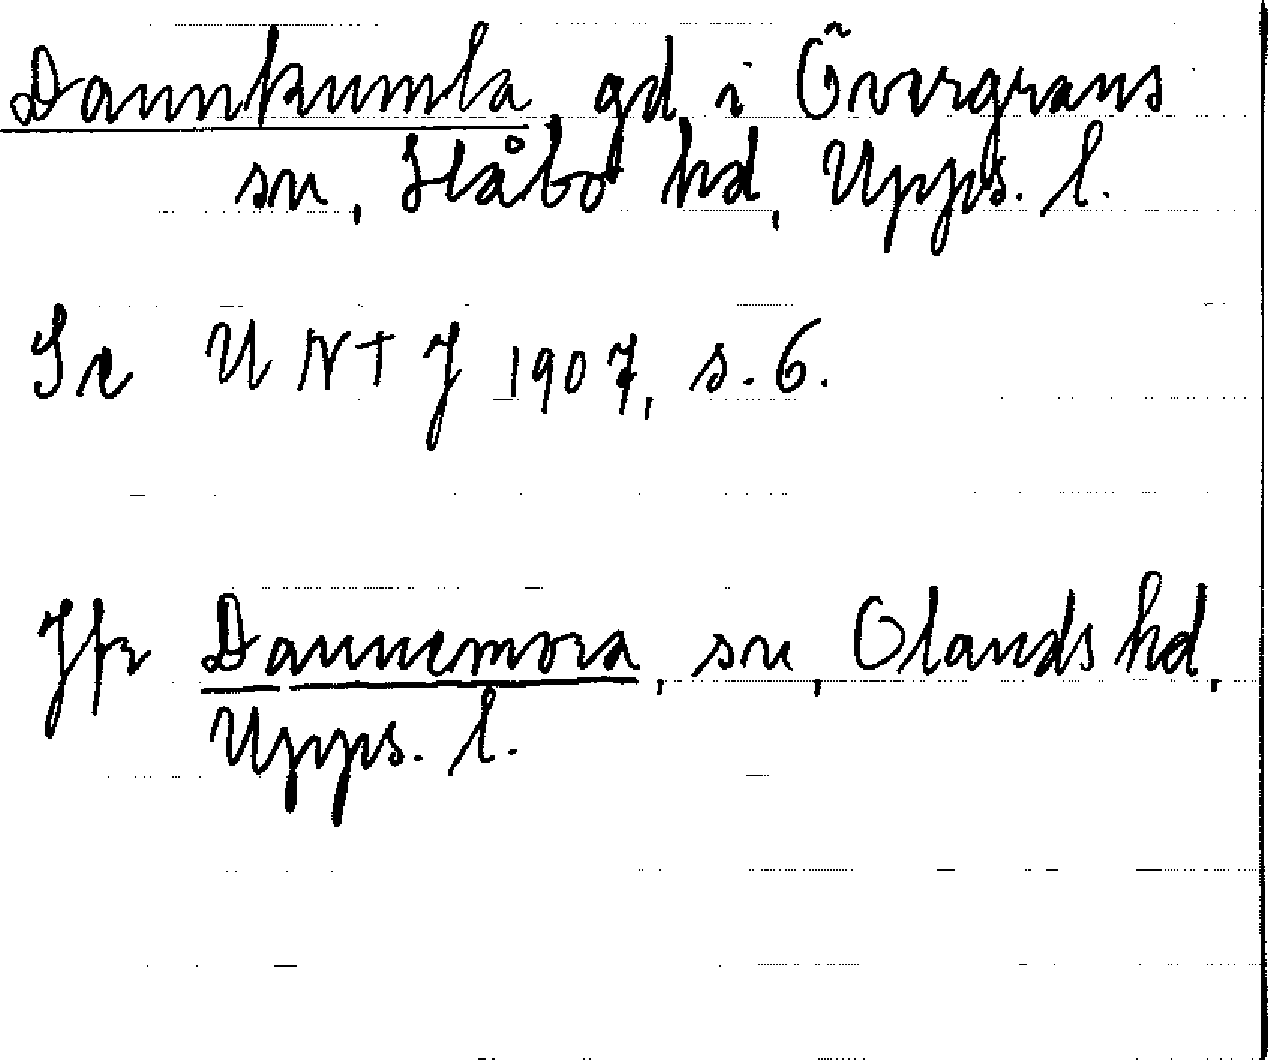 Dannkumla, gd i Övergrans
sn, Håbo hd, Upps. l.
Se UNTJ 1907, s. 6.
Jfr Dannemora, sn, Olands hd,
Upps. l.